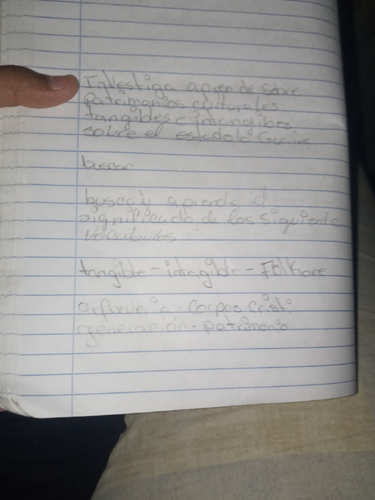 Investiga aprende sobre
Patrimonios culturales
tangibles e intangibles
sobre el estado la Guaira
buscar
busca y aprende el
significado de los siguiente
vocablos
tangible - intagible - Folklore
orfebreria - corpus cristi
generación - patrimonio